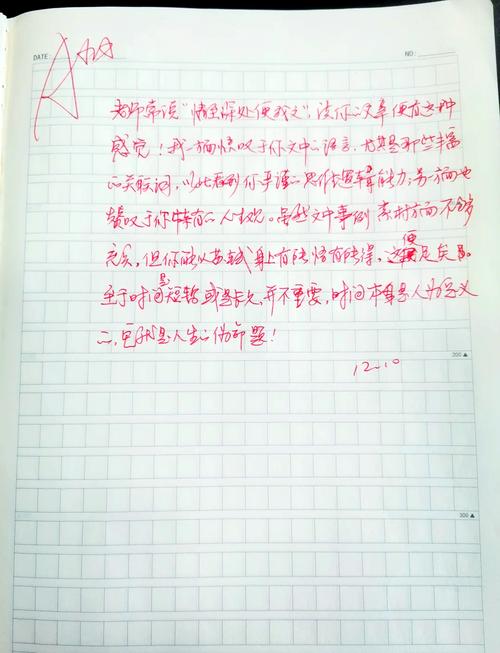 DATE:
NO:
A
老师常说“情至深处便我文”,读你的文章便有这种
感觉!我一方面惊叹于你文中的语言,尤其是那些丰富
的关联词,以此看到你严谨的思维逻辑能力;另一方面也
赞叹于你的人生观。虽然文中事例素材方面不够
充实,但你能从苏轼身上有所悟有所得,这便足矣。
至于时间是短暂或是长久,并不重要,时间本身是人为定义
的,更是人生的伪命题!
12.10
200
300